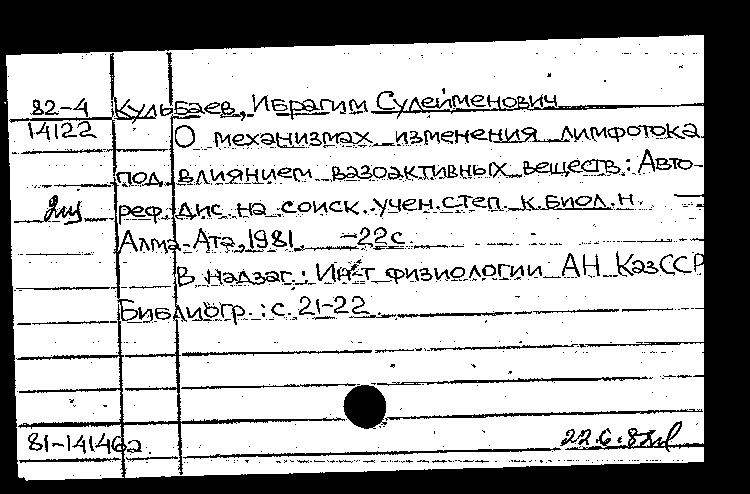 82-4 Кульбаев, Ибрагим Сулейменович
14122 О механизмах изменения лимфотока
под влиянием вазоактивных веществ: Авто-
реф. дис. на соиск. учен. степ. к. биол. н. —
Алма-Ата, 1981. -22 с.
В надзаг.: Ин-т физиологии АН КазССР
Библиогр.: с. 21-22.
81-14146а